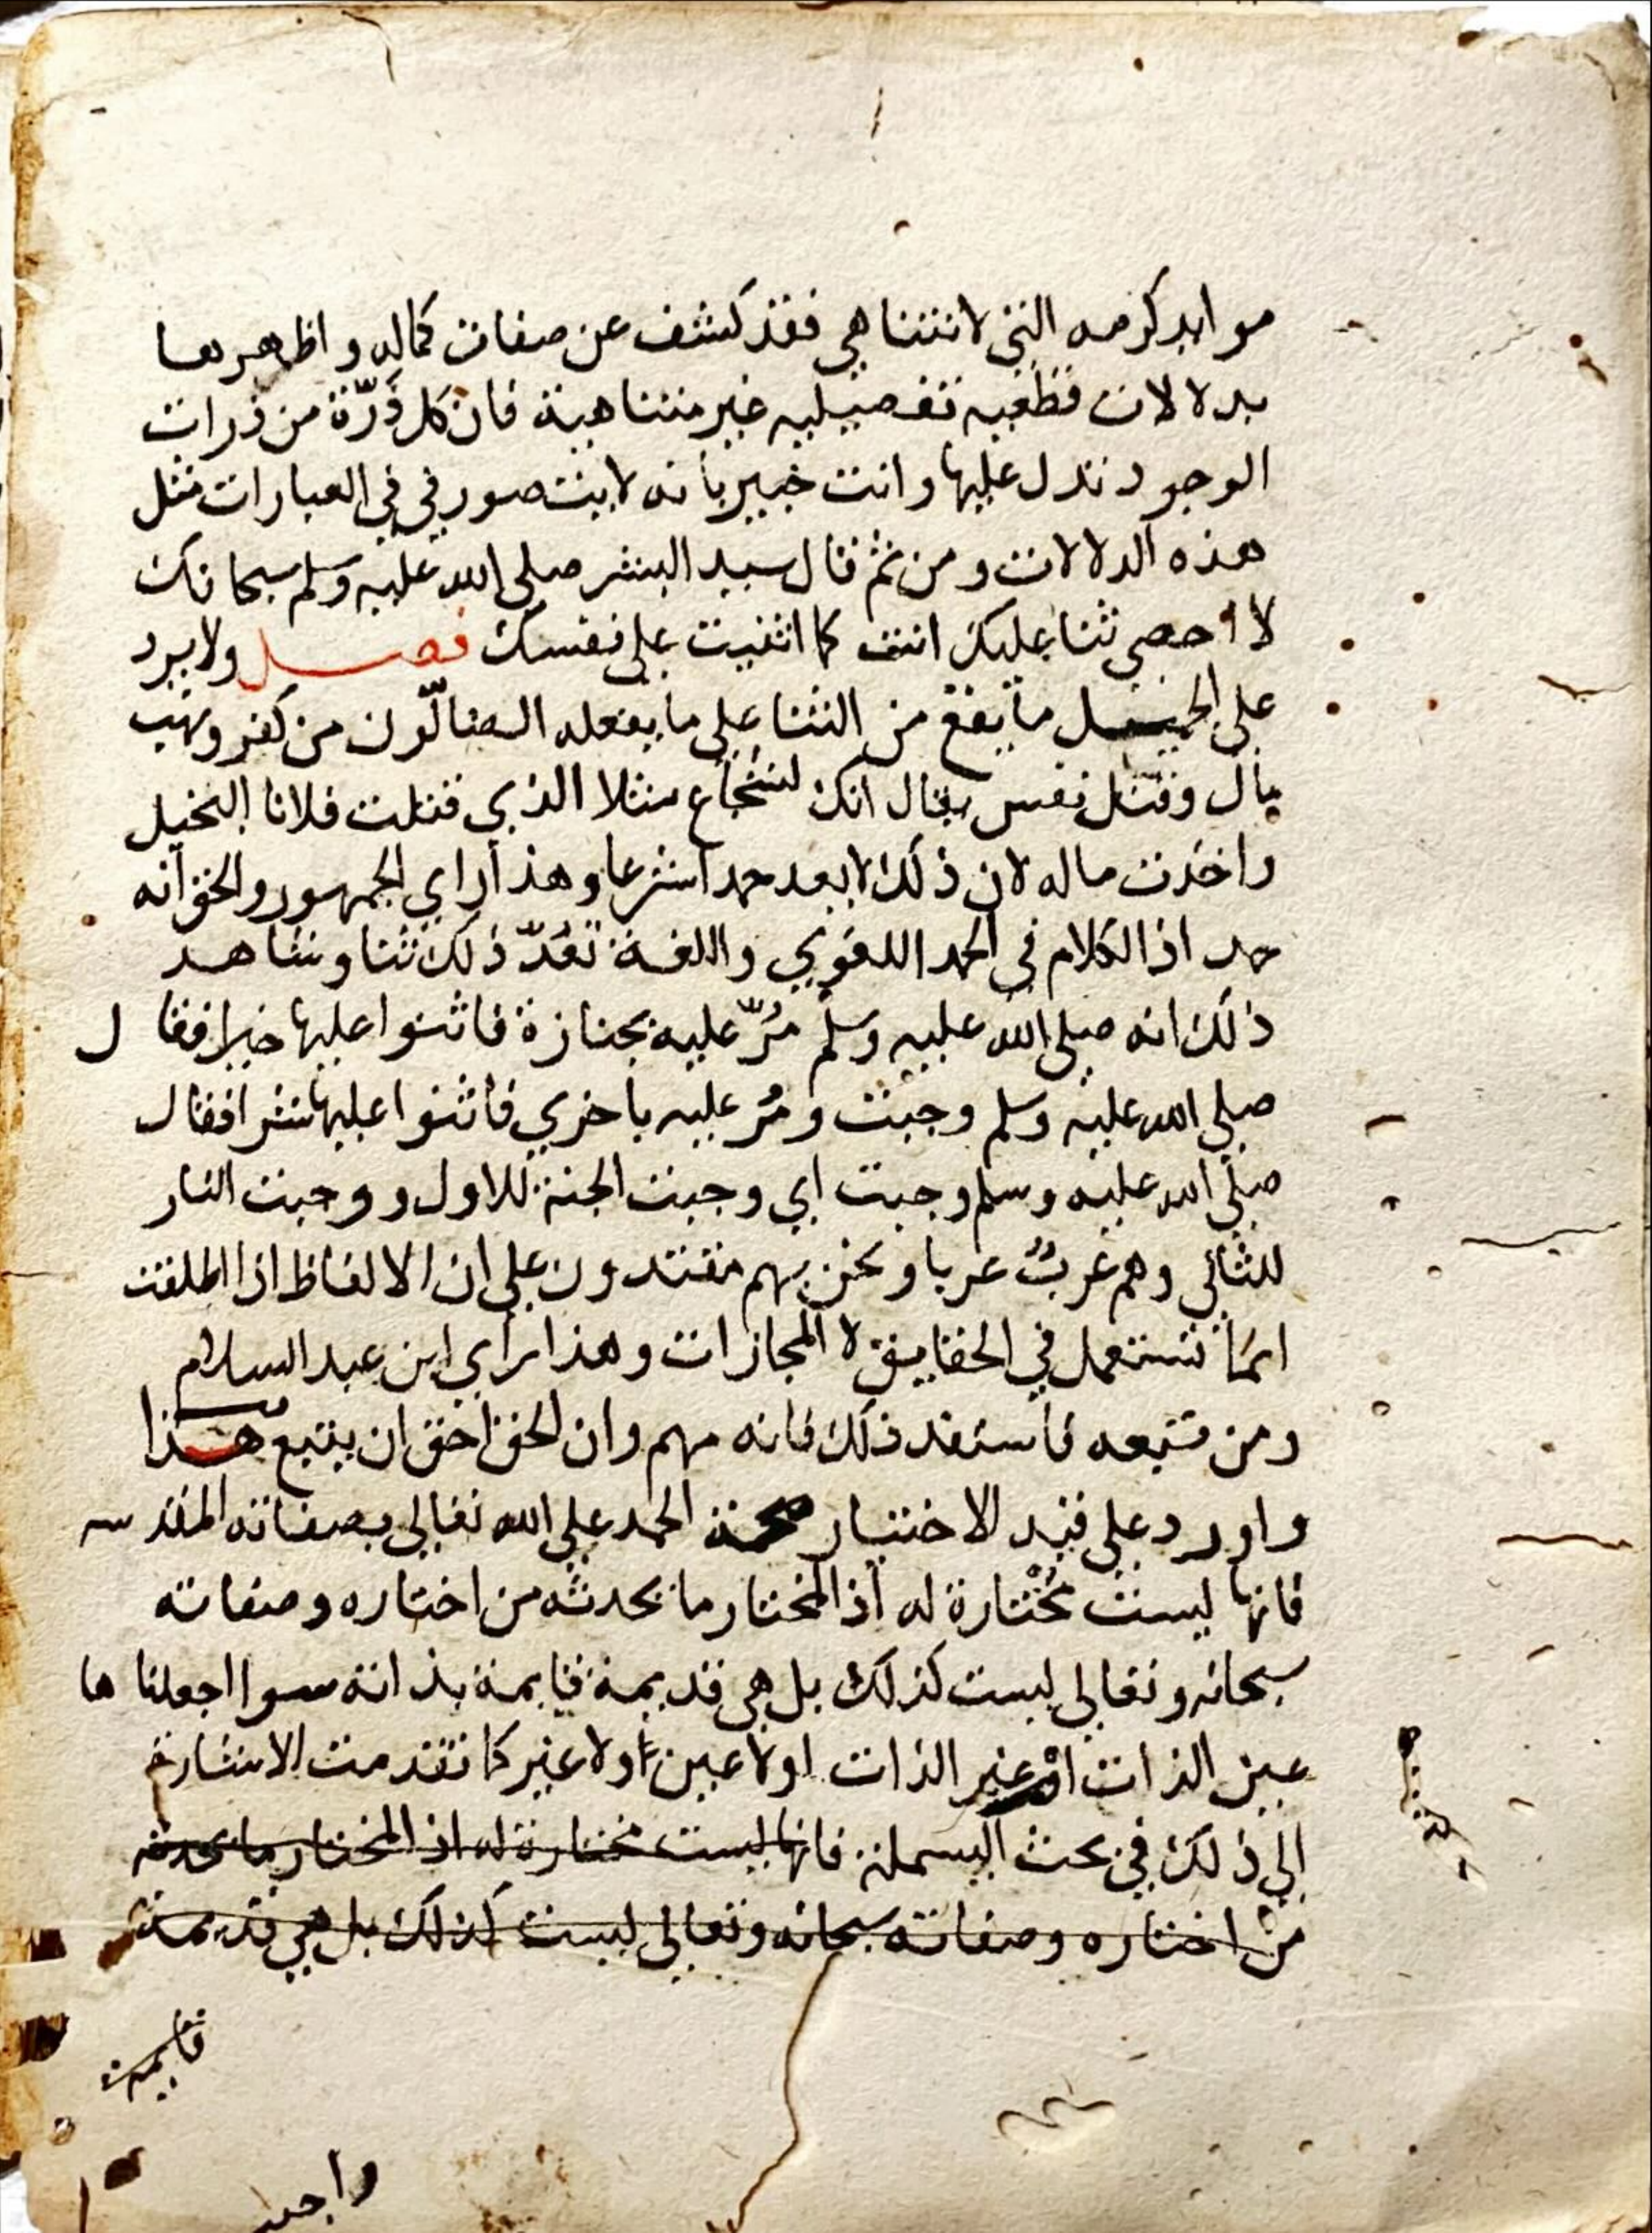 موايد كرمه التي لا تتناهي فقد كشف عن صفات كماله و اظهرها
بدلالات قطعيه تفصيليه غير متناهية فان كل ذَرّة من ذرات
الوجود تدل عليها وانت خبير بانه لا يتصور في في العبارات مثل
هذه الدلالات ومن ثم قال سيد البشر صلي الله عليه وسلم سبحانك
لا احصي ثنا عليك انت كما اثنيت علي نفسك فصل ولا يرد
علي الجميل ما يقع من الثنا علي ما يفعله الضالّون من كفر ونهب
مال وقتل نفس يقال انك لشجاع مثلا الذي قتلت فلانا البخيل
واخذت ماله لان ذلك لا يعد حمدا شرعا وهذا راي الجمهور والحق انه
حمد اذ الكلام في الحمد اللغوي واللغة تعُدّ ذلك ثنا وشاهد
ذلك انه صلي الله عليه وسلم مُرّ عليه بجنازة فاثنوا عليها خيرا فقال
صلي الله عليه وسلم وجبت ومُر عليه باخري فاثنوا عليها شرا فقال
صلي الله عليه وسلم وجبت اي وجبت الجنة للاول ووجبت النار
للثاني وهم عَربٌ عربا ونحن بهم مقتدون علي ان الالفاظ اذا اطلقت
انما تستعمل في الحقايق لا المجازات وهذا راي ابن عبد السلام
ومن تبعه فاستفد ذلك فانه مهم وان الحق احق ان يتبع هذا
واورد علي قيد الاختيار صحة الحمد علي الله تعالي بصفاته المقدسه
فانها ليست مُخْتارة له اذ المختار ما يحدثه من اختاره وصفاته
سبحانه وتعالي ليست كذلك بل هي قديمة قايمة بذاته سوا جعلناها
عين الذات اوْ غير الذات اولا عين ولا غير كما تقدمت الاشارة
الي ذلك في بحث البسملة فانها ليست مختارة له اذ المختار ما يحدثه
من اختاره وصفاته سبحانه وتعالي ليست كذلك بل هي قديمة
قايمة